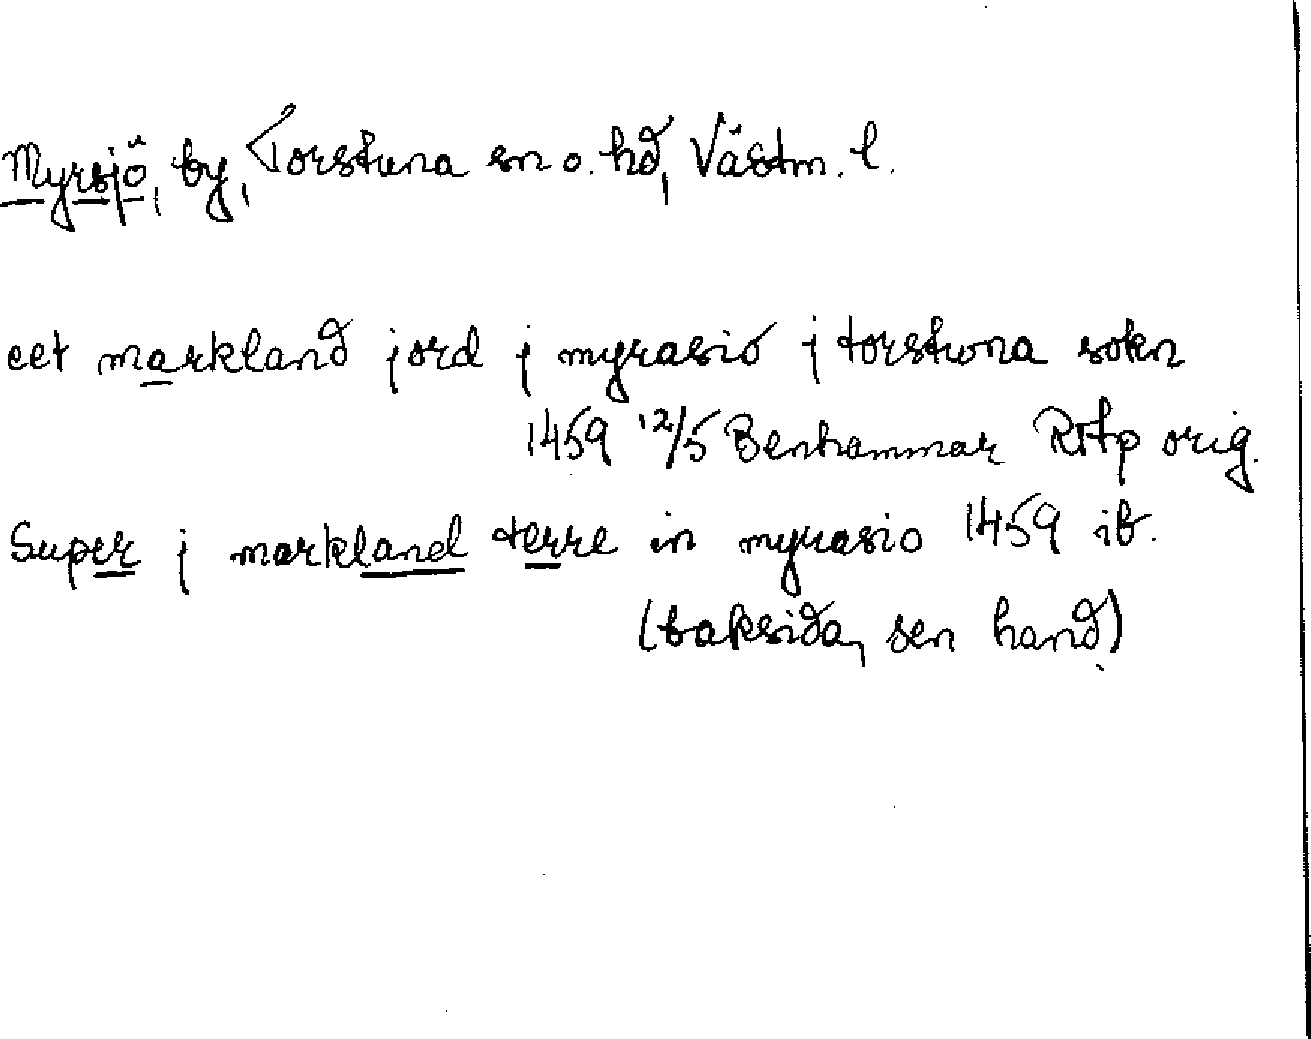 Myrsjö, by, Torstuna sn o. hd, Västm. l.
eet markland jord j myrasió j torstwna sokn
1459 12/5 Benhammar RAp orig.
Super j markland terre in myrasio 1459 ib.
(baksida, sen hand)